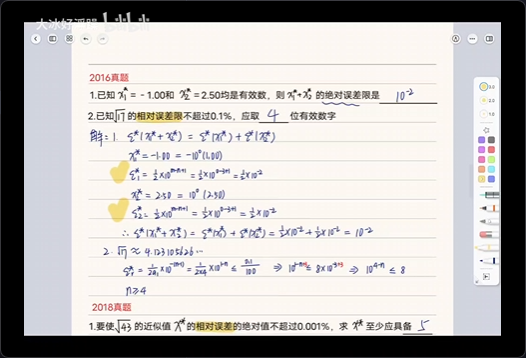 大冰好涩器 bilibili
2016真题
1.已知 x₁* = -1.00和 x₂* = 2.50均是有效数，则 x₁*+x₂* 的绝对误差限是 10⁻²
2.已知√17的相对误差限不超过0.1%，应取 4 位有效数字
解：1. ε*(x₁*+x₂*) = ε*(x₁*) + ε*(x₂*)
x₁* = -1.00 = -10⁰(1.00)
ε₁* = ½×10ᵐ⁻ⁿ⁺¹ = ½×10⁰⁻³⁺¹ = ½×10⁻²
x₂* = 2.50 = 10⁰(2.50)
ε₂* = ½×10ᵐ⁻ⁿ⁺¹ = ½×10⁰⁻³⁺¹ = ½×10⁻²
∴ ε*(x₁*+x₂*) = ε*(x₁*) + ε*(x₂*) = ½×10⁻² + ½×10⁻² = 10⁻²
2. √17 ≈ 4.123105626…
n≥4
2018真题
1.要使√43 的近似值 x* 的相对误差的绝对值不超过0.001%，求 x* 至少应具备 5